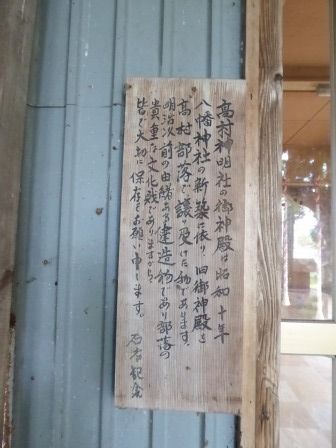 高村神明社の御神殿は昭和十年
八幡神社の新築に依り旧御神殿を
高村部落で譲り受けた物であります。
明治以前の由緒ある建造物であり部落の
貴重な文化財でありますから
皆で大切に保存をお願い申します。